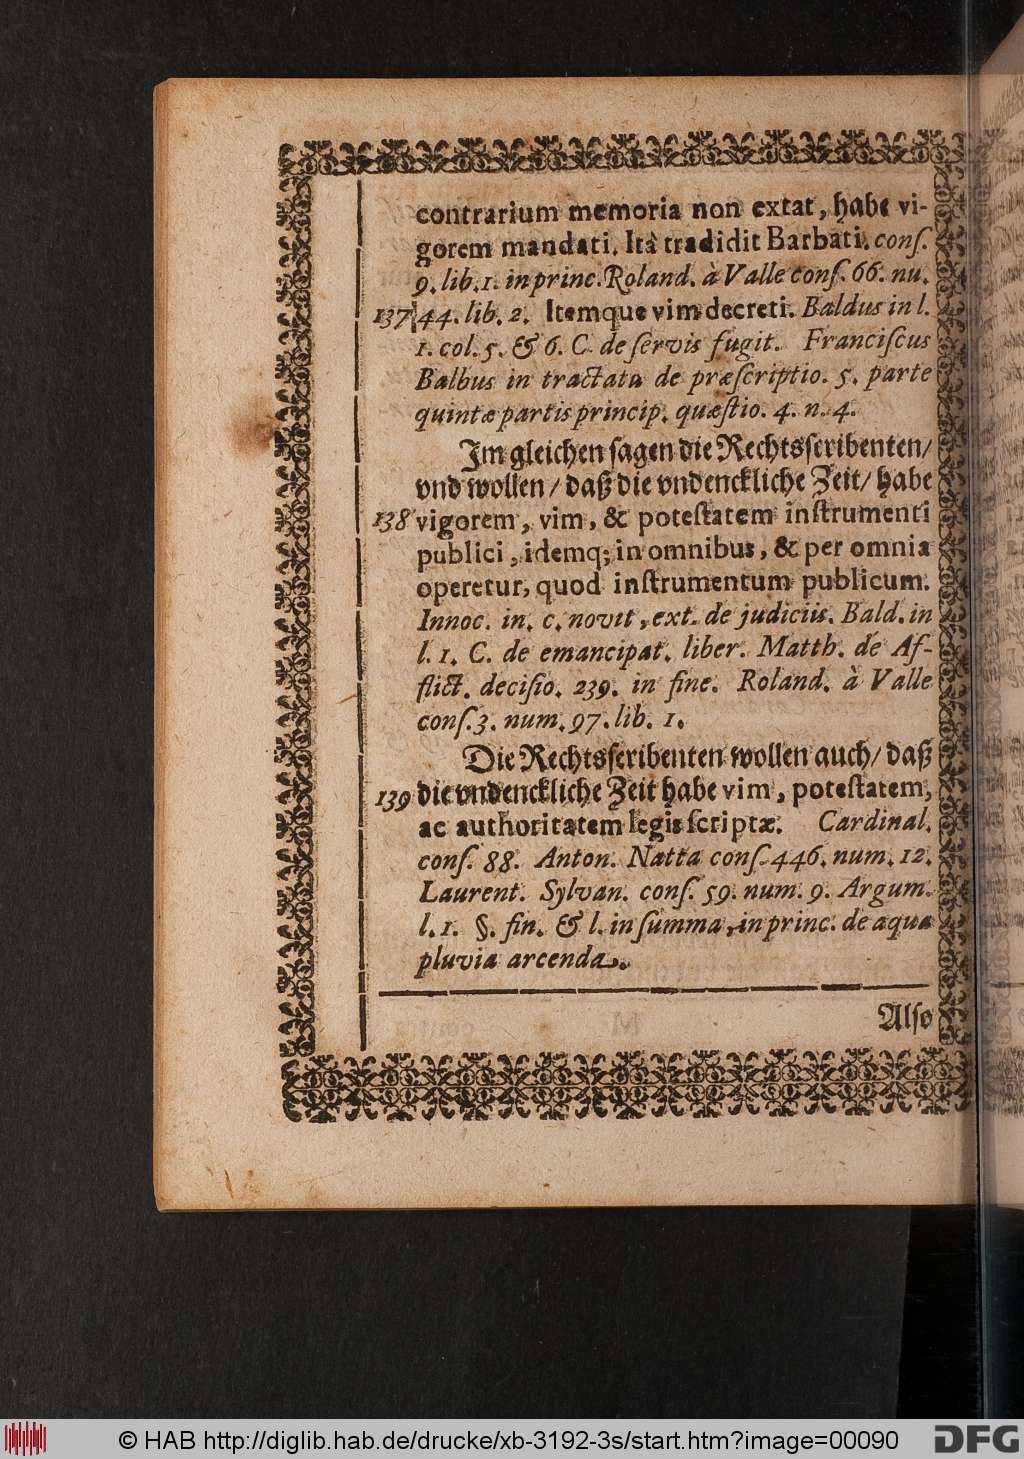 contrarium memoria non extat, habe vi-
gorem mandati. Ità tradidit Barbati. conſ.
9. lib. 1. in princ. Roland. à Valle conſ. 66. nu.
137 44. lib. 2. Itemque vim decreti. Baldus in l.
1. col. 5. & 6. C. de ſervis fugit. Franciſcus
Balbus in tractatu de præſcriptio. 5. parte
quintæ partis princip. quæſtio. 4. n. 4.
Im gleichen ſagen die Rechtsſcribenten/
vnd wollen/ daß die vndenckliche Zeit/ habe
138 vigorem, vim, & poteſtatem inſtrumenti
publici, idemq; in omnibus, & per omnia
operetur, quod inſtrumentum publicum.
Innoc. in. c. novit, ext. de judiciis. Bald. in
l. 1. C. de emancipat. liber. Matth. de Af-
flict. deciſio. 239. in fine. Roland. à Valle
conſ. 3. num. 97. lib. 1.
Die Rechtsſcribenten wollen auch/ daß
139 die vndenckliche Zeit habe vim, poteſtatem,
ac authoritatem legis ſcriptæ. Cardinal.
conſ. 88. Anton. Natta conſ. 446. num. 12.
Laurent. Sylvan. conſ. 59. num. 9. Argum.
l. 1. §. fin. & l. in ſumma, in princ. de aqua
pluvia arcenda.
Alſo
© HAB http://diglib.hab.de/drucke/xb-3192-3s/start.htm?image=00090
DFG